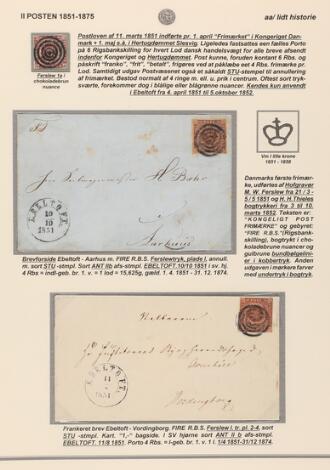 II POSTEN 1851-1875
aa/ lidt historie
Postloven af 11. marts 1851 indførte pr. 1. april "Frimærket" i Kongeriget Dan-
mark + 1. maj s.å. i Hertugdømmet Slesvig. Ligeledes fastsattes een fælles Porto
på 6 Rigsbankskilling for hvert Lod dansk handelsvægt for alle breve afsendt
indenfor Kongeriget og Hertugdømmet. Post kunne, foruden kontant 6 Rbs. og
påskrift "franko", "frit", "betalt", frigøres ved at opklæbe eet 4 Rbs. frimærke pr.
Lod. Samtidigt udgav Postvæsenet også et såkaldt STU-stempel til annullering
af frimærket. Bestod normalt af 4 ringe m. ell. u. prik i centrum. Oftest sort tryk-
sværte, forekommer dog i blålige eller blågrønne nuancer. Kendes kun anvendt
i Ebeltoft fra 4. april 1851 til 5.oktober 1852.
Ferslew 1a i
chokoladebrun
nuance
EBELTOFT
10/10
1851
Aarhuus
Vm I lille krone
1851 - 1858
Danmarks første frimær-
ke, udførtes af Hofgravør
M. W. Ferslew fra 21 / 3 -
5 / 5 1851 og H. H. Thieles
bogtrykkeri fra 3 til 10.
marts 1852. Teksten er
"KONGELIGT POST
FRIMÆRKE" og gebyret:
"FIRE R.B.S. (Rigsbank-
skilling), bogtrykt i cho-
koladebrun nuance og
gulbrune bundbølgelini-
er i kobbertryk. Anden
udgaven i mørkere farver
med undertryk i bogtryk.
Brevforside Ebeltoft - Aarhus m. FIRE R.B.S. Ferslewtryk, plade I, annull.
m. sort STU -stmpl. Sort ANT IIb afs-stmpl. EBELTOFT. 10/10 1851 i sv. hj.
4 Rbs = indl-geb. br. 1. v. = 1 lod = 15,625g, gæld. 1. 4. 1851 - 31. 12. 1874.
EBELTOFT
11
1851
Vordingborg
Frankeret brev Ebeltoft - Vordingborg. FIRE R.B.S. Ferslew I. tr. pl. 2-4, sort
STU -stmpl. Kart. "1,-" bagside. I SV hjørne sort ANT II b afs-stmpl.
EBELTOFT. 11/8 1851. Porto 4 Rbs. = i-geb. br. 1 v. i 1/4 1851-31/12 1874.